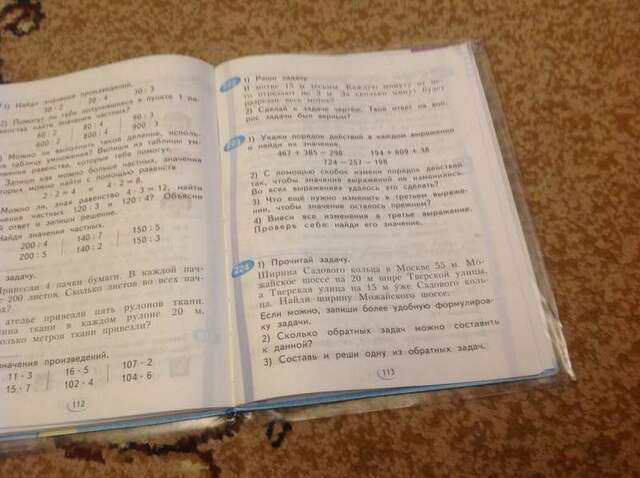 1) Найди значения произведений.
30 · 2 30 · 4 70 · 3
2) Помогут ли тебе получившиеся в пункте 1 ра-
венства найти значения частных?
60 : 2 80 : 4 90 : 3
600 : 2 800 : 4 900 : 3
3) Можно ли выполнить такое деление, исполь-
таблицу умножения? Выпиши из таблицы ум-
равенства, которые тебе помогут.
Запиши как можно больше частных, значения
которых можно найти с помощью равенств
2 · 2 = 4 и 4 · 2 = 8.
Можно ли, зная равенство 4 · 3 = 12, найти
частных 120 : 3 и 120 : 4? Объясни
ответ и запиши решение.
Найди значения частных.
200 : 4 140 : 7 150 : 5
200 : 5 140 : 2 150 : 3
задачу.
Принесли 4 пачки бумаги. В каждой пач-
200 листов. Сколько листов во всех пач-
ателье привезли пять рулонов ткани.
ткани в каждом рулоне 20 м.
метров ткани привезли?
значения произведений.
11 · 3 16 · 5 107 · 2
15 · 7 102 · 4 104 · 6
112
1) Реши задачу.
В мотке 15 м тесьмы. Каждую минуту от не-
го отрезают по 3 м. За сколько минут будет
разрезан весь моток?
2) Сделай к задаче чертёж. Твой ответ на воп-
рос задачи был верным?
1) Укажи порядок действий в каждом выражении
и найди их значения.
467 + 385 − 298 194 + 609 + 38
724 − 257 − 198
2) С помощью скобок измени порядок действий
так, чтобы значения выражений не изменились.
Во всех выражениях удалось это сделать?
3) Что ещё нужно изменить в третьем выраже-
нии, чтобы значение осталось прежним?
4) Внеси все изменения в третье выражение.
Проверь себя: найди его значение.
224
1) Прочитай задачу.
Ширина Садового кольца в Москве 55 м. Мо-
жайское шоссе на 20 м шире Тверской улицы,
а Тверская улица на 15 м уже Садового коль-
ца. Найди ширину Можайского шоссе.
Если можно, запиши более удобную формулиров-
ку задачи.
2) Сколько обратных задач можно составить
к данной?
3) Составь и реши одну из обратных задач.
113